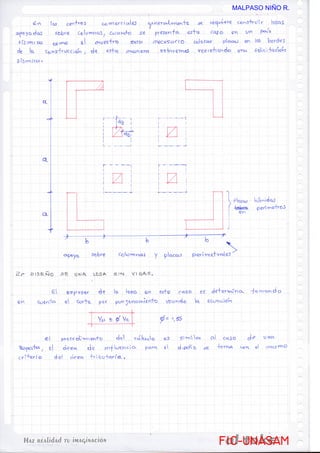 MALPASO NIÑO R.
En los centros comerciales generalmente se requiere construir losas
apoyadas sobre columnas, cuando se presenta este caso en un país
sísmico como el nuestro será necesario colocar placas en los bordes
de la construcción, de esta manera estaremos resistiendo una solicitación
sísmica.
a
a
a
b
b
b
Placas
perimetrales
apoyo sobre columnas y placas perimetrales
DISEÑO DE UNA LOSA SIN VIGAS.
El espesor de la losa en este caso se determina tomando
en cuenta el corte por punzonamiento usando la ecuación
Vu ≤ φ Vc
φ =
El procedimiento del cálculo es similar al caso de una
zapata, el área de influencia para el diseño se toma con el mismo
criterio del área tributaria.
Haz realidad tu imaginación
FIC-UNASAM